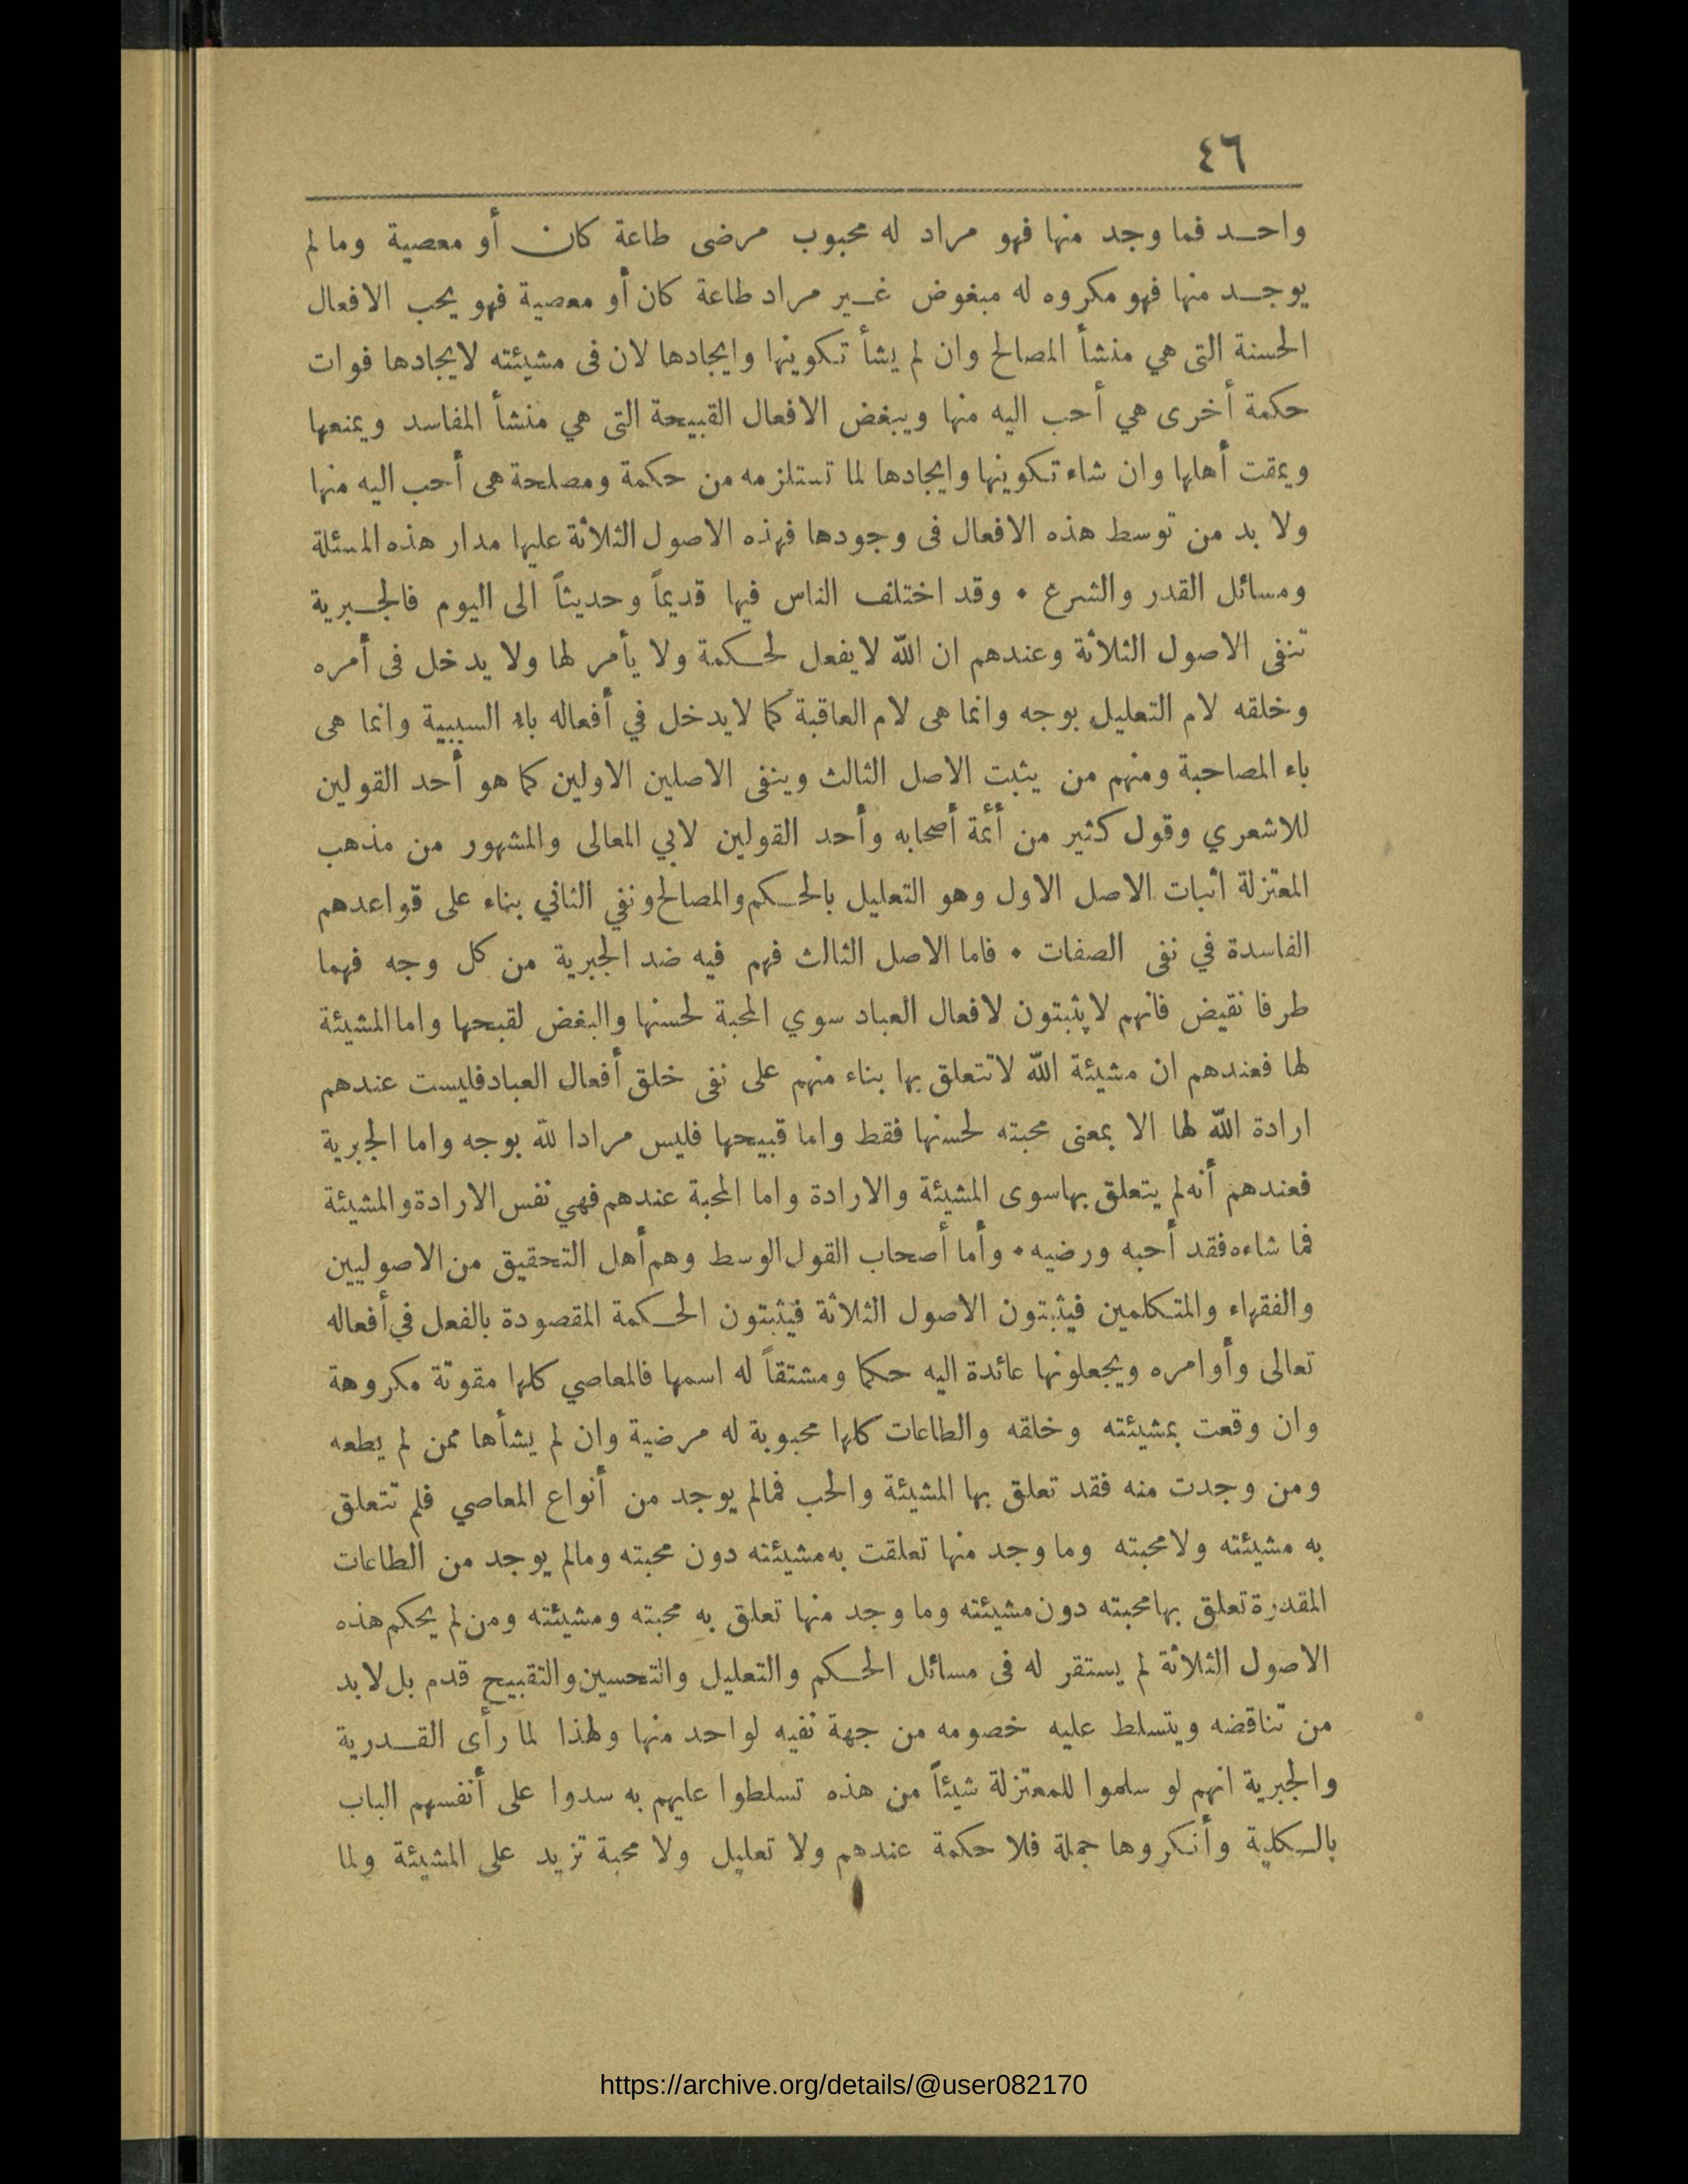 ٤٦
واحد فما وجد منها فهو مراد له محبوب مرضى طاعة كان أو معصية وما لم
يوجد منها فهو مكروه له مبغوض غير مراد طاعة كان أو معصية فهو يحب الافعال
الحسنة التى هي منشأ المصالح وان لم يشأ تكوينها وايجادها لان فى مشيئته لايجادها فوات
حكمة أخرى هي أحب اليه منها ويبغض الافعال القبيحة التى هي منشأ المفاسد ويمنعها
ويمقت أهلها وان شاء تكوينها وايجادها لما تستلزمه من حكمة ومصلحة هى أحب اليه منها
ولا بد من توسط هذه الافعال فى وجودها فهذه الاصول الثلاثة عليها مدار هذه المسئلة
ومسائل القدر والشرع • وقد اختلف الناس فيها قديماً وحديثاً الى اليوم فالجبرية
تنفى الاصول الثلاثة وعندهم ان الله لا يفعل لحكمة ولا يأمر لها ولا يدخل فى أمره
وخلقه لام التعليل بوجه وانما هى لام العاقبة كما لا يدخل في أفعاله باء السببية وانما هى
باء المصاحبة ومنهم من يثبت الاصل الثالث وينفى الاصلين الاولين كما هو أحد القولين
للاشعري وقول كثير من أئمة أصحابه وأحد القولين لابي المعالى والمشهور من مذهب
المعتزلة اثبات الاصل الاول وهو التعليل بالحكم والمصالح ونفي الثاني بناء على قواعدهم
الفاسدة في نفى الصفات • فاما الاصل الثالث فهم فيه ضد الجبرية من كل وجه فهما
طرفا نقيض فانهم لا يثبتون لافعال العباد سوي المحبة لحسنها والبغض لقبحها واما المشيئة
لها فعندهم ان مشيئة الله لا تتعلق بها بناء منهم على نفى خلق أفعال العباد فليست عندهم
ارادة الله لها الا بمعنى محبته لحسنها فقط واما قبيحها فليس مرادا لله بوجه واما الجبرية
فعندهم أنه لم يتعلق بها سوى المشيئة والارادة واما المحبة عندهم فهي نفس الارادة والمشيئة
فما شاءه فقد أحبه ورضيه • وأما أصحاب القول الوسط وهم أهل التحقيق من الاصوليين
والفقهاء والمتكلمين فيثبتون الاصول الثلاثة فيثبتون الحكمة المقصودة بالفعل في أفعاله
تعالى وأوامره ويجعلونها عائدة اليه حكما ومشتقاً له اسمها فالمعاصي كلها مقوتة مكروهة
وان وقعت بمشيئته وخلقه والطاعات كلها محبوبة له مرضية وان لم يشأها ممن لم يطعه
ومن وجدت منه فقد تعلق بها المشيئة والحب فمالم يوجد من أنواع المعاصي فلم تتعلق
به مشيئته ولا محبته وما وجد منها تعلقت به مشيئته دون محبته ومالم يوجد من الطاعات
المقدرة تعلق بها محبته دون مشيئته وما وجد منها تعلق به محبته ومشيئته ومن لم يحكم هذه
الاصول الثلاثة لم يستقر له فى مسائل الحكم والتعليل والتحسين والتقبيح قدم بل لا بد
من تناقضه ويتسلط عليه خصومه من جهة نفيه لواحد منها ولهذا لما رأى القدرية
والجبرية انهم لو سلموا للمعتزلة شيئاً من هذه تسلطوا عليهم به سدوا على أنفسهم الباب
بالكلية وأنكروها جملة فلا حكمة عندهم ولا تعليل ولا محبة تزيد على المشيئة ولما
https://archive.org/details/@user082170